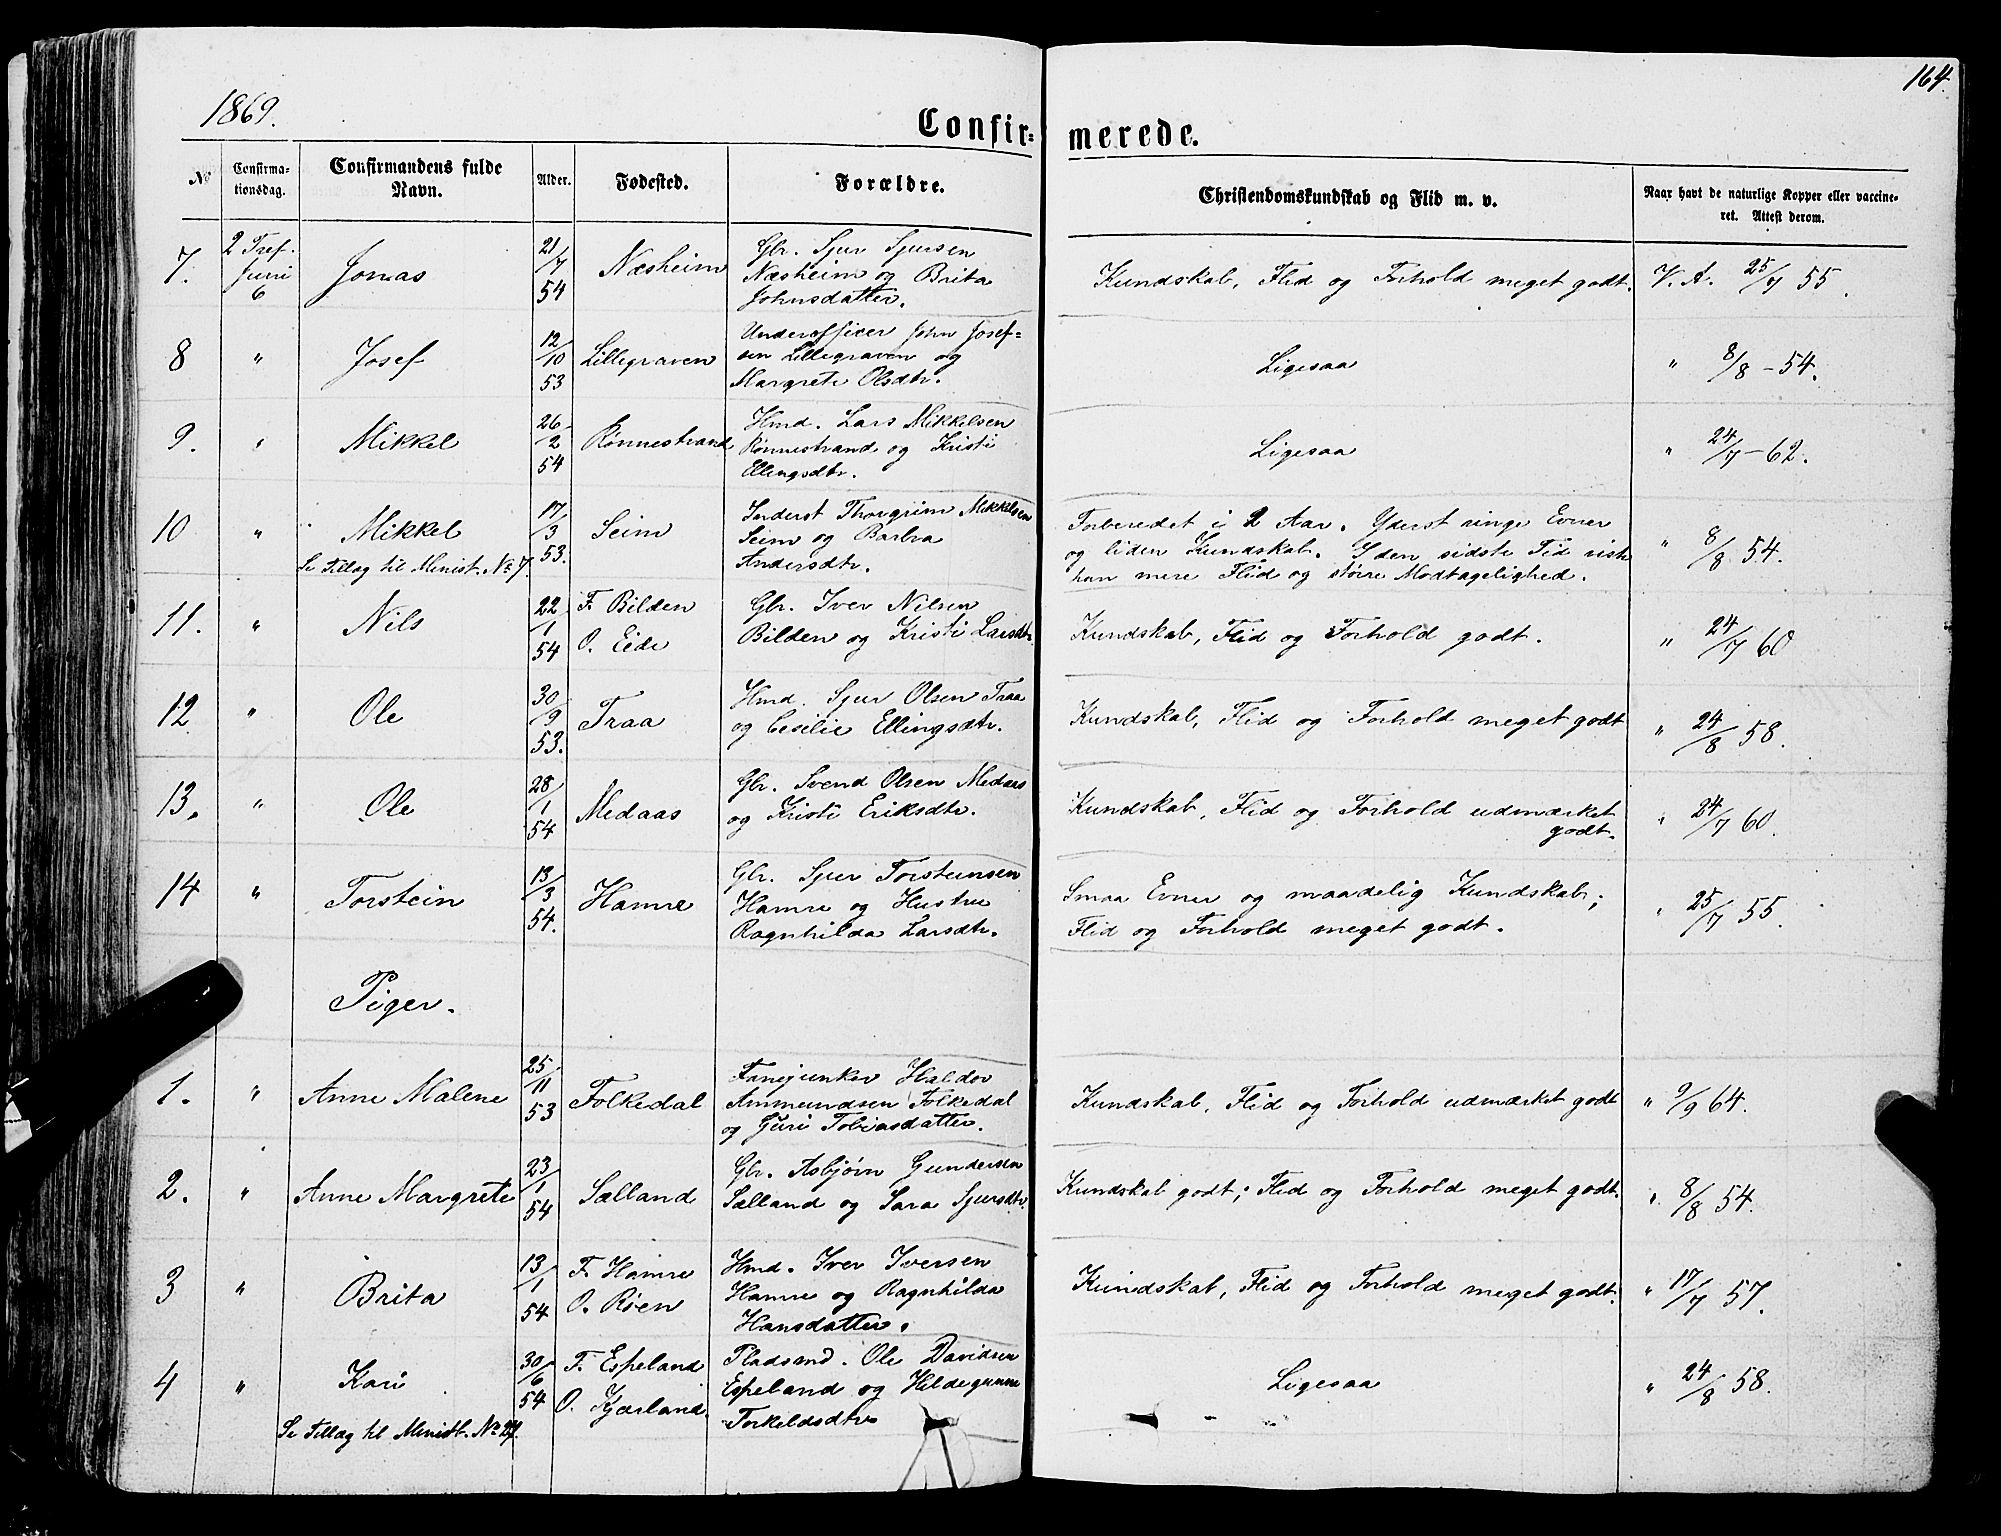 164.
1869.
Confir= merede.
No
Confirma-
tionsdag.
Confirmandens fulde
Navn.
Alder.
Fødested.
Forældre.
Christendomskundskab og Flid m. v.
Naar havt de naturlige Kopper eller vaccine-
ret. Attest derom.
7. 2 Tref. Juni 6 Jonas 21/7 54 Næsheim
Gbr. Sjur Sjursen
Næsheim og Brita
Johnsdatter.
Kundskab, Flid og Forhold meget godt. V. A. 25/7 55.
8 " Josef 12/10 53 Lillegraven
Underofficer John Josef=
sen Lillegraven og
Margrete Olsdtr.
Ligesaa " 8/8 - 54.
9. " Mikkel 26/2 54 Rønnestrand
Hmd. Lars Mikkelsen
Rønnestrand og Kristi
Ellingsdtr.
Ligesaa " 24/7 - 62.
10 " Mikkel 17/3 53. Seim
Se Tillæg til Minist. No 7.
Inderst Thorgrim Mikkelsen
Seim og Barbra
Andersdtr.
Forberedet i 2 Aar. Yderst ringe Evner
og liden Kundskab. I den sidste Tid viste
han mere Flid og større Modtagelighed.
" 8/8 54.
11. " Nils 22/1 54 F. Bilden
O. Eide
Gbr. Iver Nilsen
Bilden og Kristi Larsdtr.
Kundskab, Flid og Forhold godt. " 24/7 60
12 " Ole 30/9 53. Traa
Hmd. Sjur Olsen Traa
og Cesilie Ellingsdtr.
Kundskab, Flid og Forhold meget godt " 24/8 58.
13. " Ole 28/1 54 Medaas
Gbr. Svend Olsen Medaas
og Kristi Eriksdtr.
Kundskab, Flid og Forhold udmærket
godt.
" 24/7 60.
14 " Torstein 13/3 54. Hamre
Gbr. Sjur Torsteinsen
Hamre og Hustru
Ragnhilda Larsdtr.
Smaa Evner og maadelig Kundskab;
Flid og Forhold meget godt.
" 25/7 55.
Piger.
1. " Anne Malene 25/11 53 Folkedal
Fanejunker Haldor
Ammundsen Folkedal
og Guri Tobiasdatter.
Kundskab, Flid og Forhold udmærket godt " 9/9 64.
2. " Anne Margrete 23/1 54 Sælland
Gbr. Asbjørn Gundersen
Sælland og Sara Sjursdtr.
Kundskab godt; Flid og Forhold meget godt. " 8/8 54.
3 " Brita 13/1 54 F. Hamre
O. Røen
Hmd. Iver Iversen
Hamre og Ragnhilda
Hansdatter.
Kundskab, Flid og Forhold meget godt. " 17/7 57.
4 " Kari 30/6 54 F. Espeland
O. Kjærland.
Se Tillæg til Ministb. No 27.
Pladsmd. Ole Davidsen
Espeland og Hildegunne
Torkeldsdtr
Ligesaa " 24/8 58.